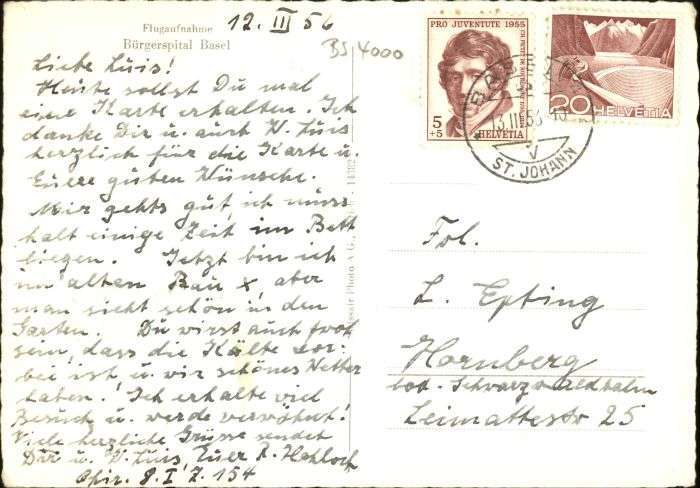 12. III 56
Flugaufnahme
Bürgerspital Basel
BS/4000
Liebe Luis!
Heute sollst Du mal
eine Karte erhalten. Ich
danke Dir u. auch W. Luis
herzlich für die Karte u.
Euere guten Wünsche.
Mir gehts gut, ich muss
halt einige Zeit im Bett
liegen. Jetzt bin ich
im alten Bau x, aber
man sieht schön in den
Garten. Du wirst auch froh
sein, dass die Kälte vor-
bei ist u. wir schönes Wetter
haben! Ich erhalte viel
Besuch u. werde verwöhnt!
Viele herzliche Grüsse sendet
Dir u. W. Luis, Euer
Chir. 8. I Z. 154
Photo A.G.,
PRO JUVENTUTE 1955
5
+5
HELVETIA
20 HELVETIA
BASEL
13.III.56
V
ST. JOHANN
L. Epting
Hornberg
bad. Schwarzwaldbahn
Leimattestr 25